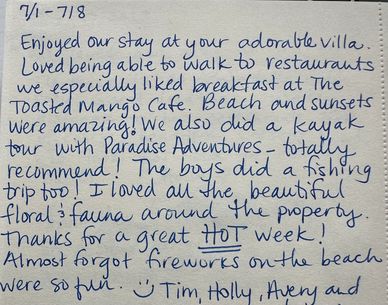 7/1 - 7/8
Enjoyed our stay at your adorable villa.
Loved being able to walk to restaurants
we especially liked breakfast at The
Toasted Mango Cafe. Beach and sunsets
were amazing! We also did a kayak
tour with Paradise Adventures - totally
recommend! The boys did a fishing
trip too! I loved all the beautiful
floral & fauna around the property.
Thanks for a great HOT week!
Almost forgot fireworks on the beach
were so fun. ☺ Tim, Holly, Avery and